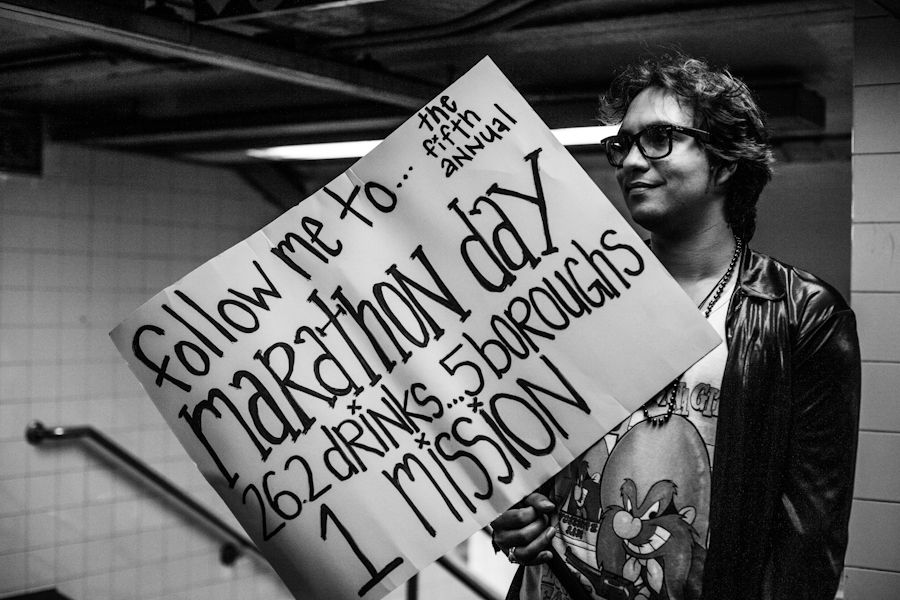 the
fifth
annual
follow me to...
maRathoN day
26.2 dRiNKS...5 boRoughs
1 mission